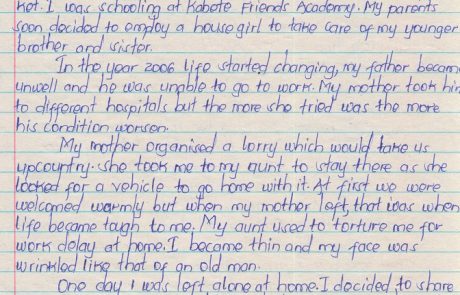 ket. I was schooling at Kabete Friends Academy. My parents
soon decided to employ a housegirl to take care of my younger
brother and sister.
In the year 2006 life started changing, my father became
unwell and he was unable to go to work. My mother took him
to different hospitals but the more she tried was the more
his condition worsen.
My mother organised a lorry which would take us
upcountry. She took me to my aunt to stay there as she
looked for a vehicle to go home with it. At first we were
welcomed warmly but when my mother left, that was when
life became tough to me. My aunt used to torture me for
work delay at home. I became thin and my face was
wrinkled like that of an old man.
One day I was left alone at home. I decided to share